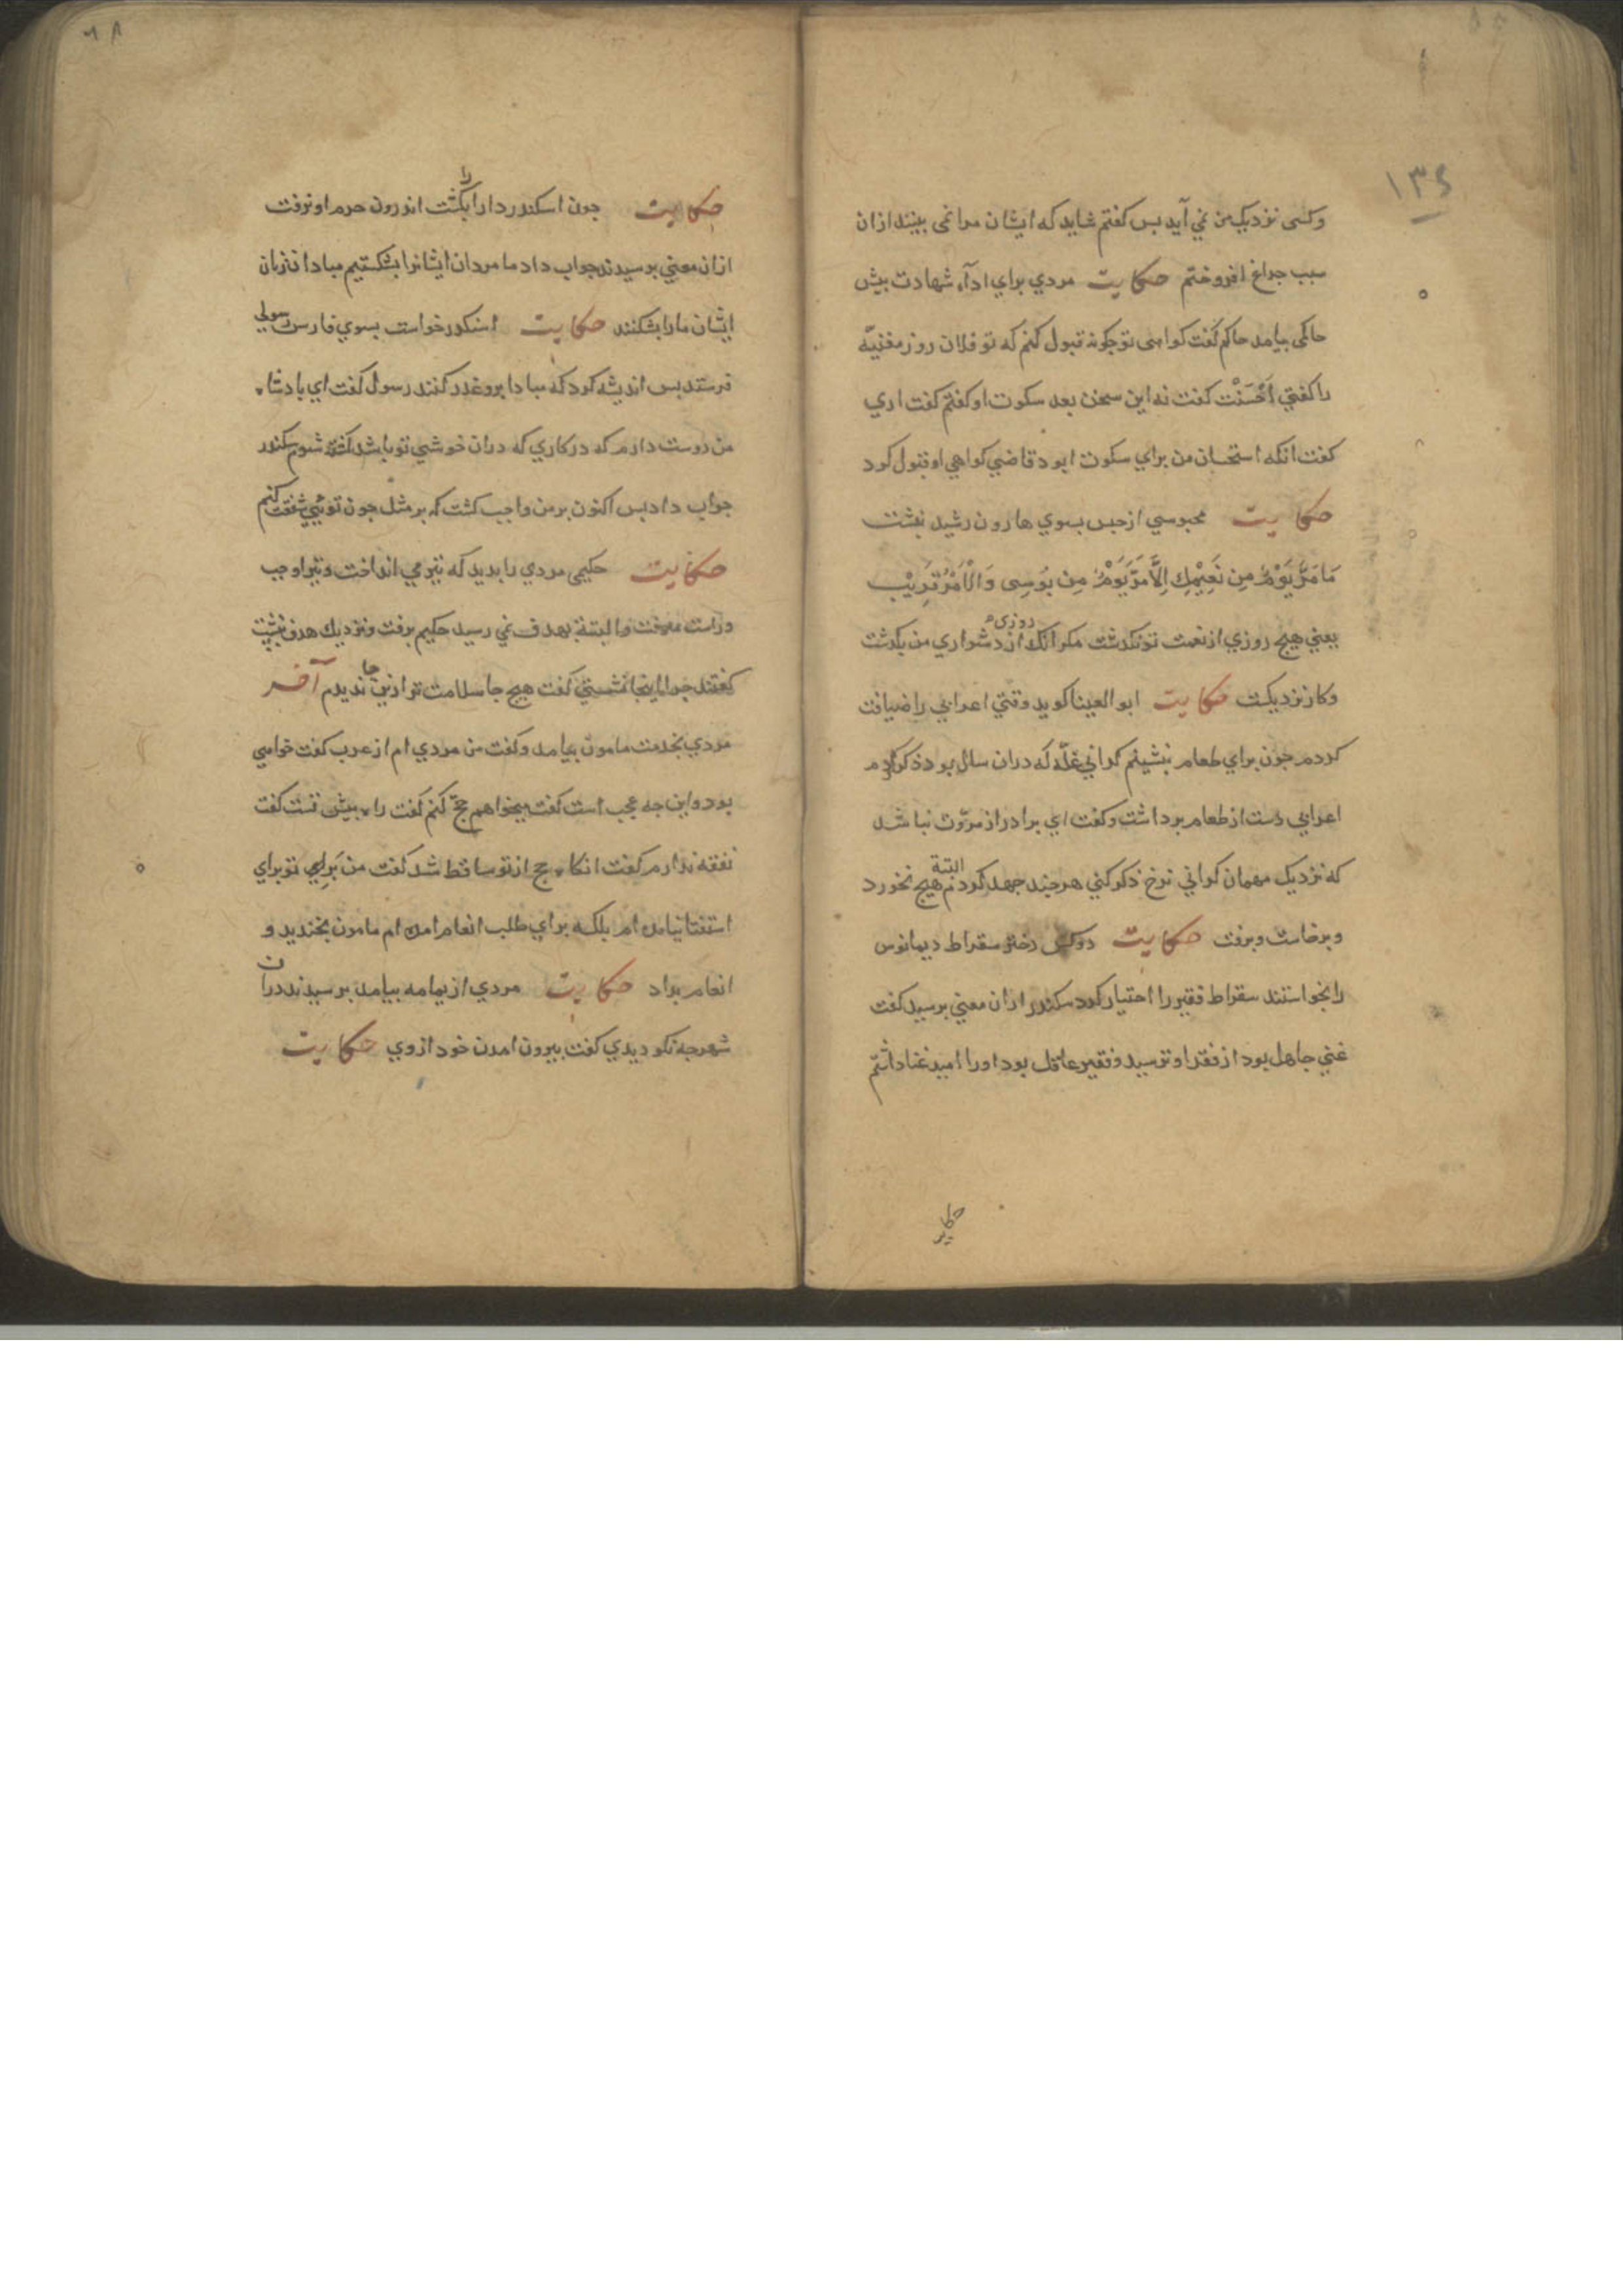 ۱۳۶
وکسی نزدیک من نمی آید بس کفتم شاید که ایشان مرا نمی بینند ازان
سبب جراغ افروختم حکایت مردي براي ادآء شهادت بیش
حاکمی بیامد حاکم کفت کواهی تو جکونه قبول کنم که تو فلان روز مغنیّه
را کفتي اَحْسَنْت کفت نه این سخن بعد سکوت او کفتم کفت اري
کفت انکه استحسان من براي سکوت ابود قاضي کواهي او قبول کرد
حکایت محبوسي از حبس بسوي هارون رشید نبشت
مَا مَرَّ یَوْمٌ مِن نَعِیْمِكِ اِلَّا مَرَّ یَوْمٌ مِن بُوسِی وَالْاَمْرُ قَرِیْب
یعني هیج روزي از نعمت تو نکذشت مکر انک روزی از دشواري من بکذشت
وکار نزدیکست حکایت ابو العینا کوید وقتي اعرابي را ضیافت
کردم جون براي طعام بنشینم کراني غلّه که دران سال بود ذکر کردم
اعرابي دست از طعام برداشت وکفت اي برادر از مروّت نباشد
که نزدیک مهمان کراني نرخ ذکر کني هرجند جهد کردم البتة هیج نخورد
و برخاست و برفت حکایت دوکس دختر سقراط دیمانوس
را بخواستند سقراط فقیر را اختیار کرد سکندر ازان معني برسید کفت
غني جاهل بود از فقر او ترسید و فقیر عاقل بود اورا امید غنا داشتم
حکایت
۶۸
حکایت جون اسکندر دارا را بکشت اندرون حرم او نرفت
ازان معني برسیدند جواب داد ما مردان ایشانرا بشکستیم مبادا زنان
ایشان مارا بشکنند حکایت اسکندر خواست بسوي فارس رسولي
فرستد بس اندیشه کرد که مبادا برو غدر کنند رسول کفت اي بادشاه
من دوست دارم که در کاري که دران خوشي تو باشد کشته شوم سکندر
جواب داد بس اکنون بر من واجب کشت که بر مثل جون توئي شفقت کنم
حکایت حکیمی مردي را بدید که تیر مي انداخت و تیر او جب
وراست میرفت و البتة بهدف نمي رسید حکیم برفت و نزدیك هدف بنشست
کفتند جرا اینجا نشستي کفت هیج جا سلامت تر ازین جا ندیدم آخر
مردي بخدمت مامون بیامد وکفت من مردي ام از عرب کفت خواهي
بود واین جه عجب است کفت میخواهم حجّ کنم کفت راه بیش تست کفت
نفقه ندارم کفت انکاه حج از تو ساقط شد کفت من بَراي تو براي
استفتا نیامده ام بلکه براي طلب انعام امده ام مامون بخندید و
انعام بداد حکایت مردي از یمامه بیامد برسیدند دران
شهر جه نکو دیدي کفت بیرون امدن خود ازوي حکایت